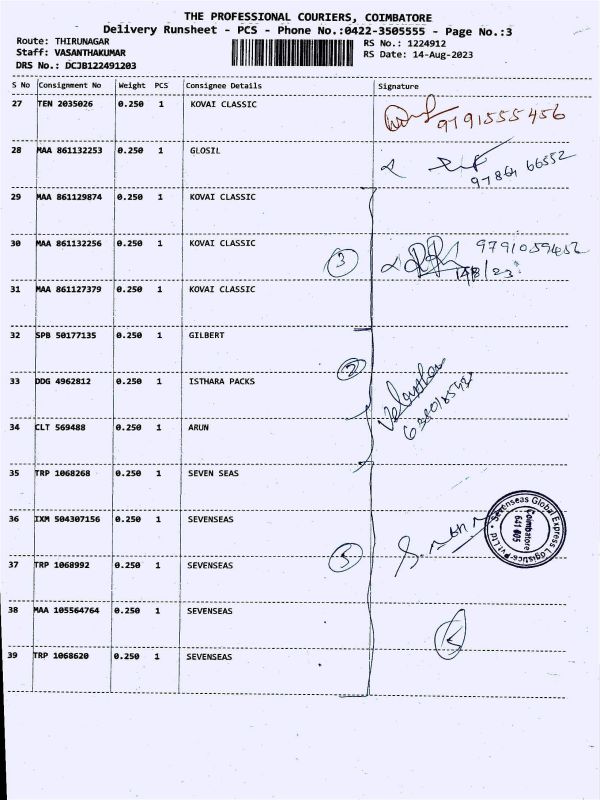 THE PROFESSIONAL COURIERS, COIMBATORE
Delivery Runsheet - PCS - Phone No.:0422-3505555 - Page No.:3
Route: THIRUNAGAR
RS No.: 1224912
Staff: VASANTHAKUMAR
RS Date: 14-Aug-2023
DRS No.: DCJB122491203
S No Consignment No Weight PCS Consignee Details Signature
27 TEN 2035026 0.250 1 KOVAI CLASSIC
9791555456
28 MAA 861132253 0.250 1 GLOSIL
97864 66552
29 MAA 861129874 0.250 1 KOVAI CLASSIC
30 MAA 861132256 0.250 1 KOVAI CLASSIC
3
14/8/23
31 MAA 861127379 0.250 1 KOVAI CLASSIC
32 SPB 50177135 0.250 1 GILBERT
2
33 DDG 4962812 0.250 1 ISTHARA PACKS
34 CLT 569488 0.250 1 ARUN
35 TRP 1068268 0.250 1 SEVEN SEAS
36 IXM 504307156 0.250 1 SEVENSEAS
Sevenseas Global Express Logistics Pvt Ltd
Coimbatore
641 005
5
37 TRP 1068992 0.250 1 SEVENSEAS
38 MAA 105564764 0.250 1 SEVENSEAS
39 TRP 1068620 0.250 1 SEVENSEAS